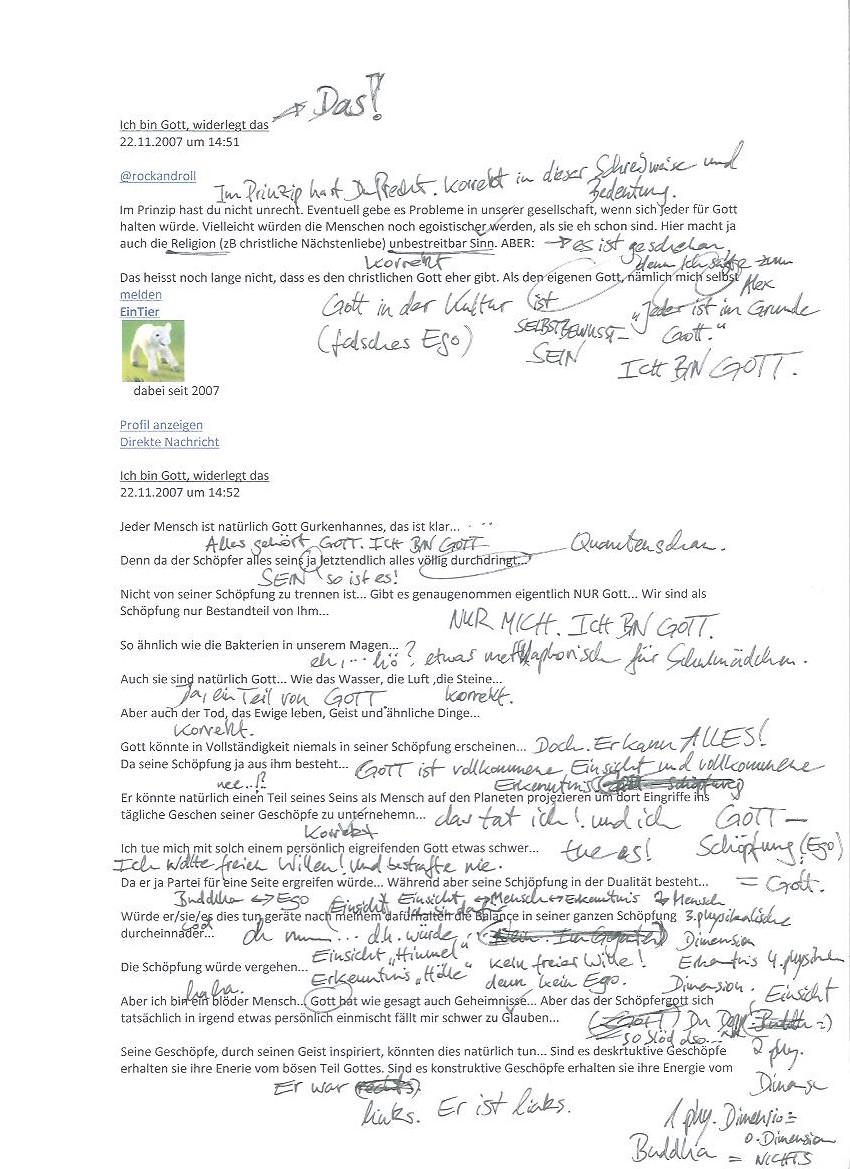 Das!
Ich bin Gott, widerlegt das
22.11.2007 um 14:51
@rockandroll
Im Prinzip hast Du Recht. Korrekt in dieser Schreibweise und
Bedeutung.
Im Prinzip hast du nicht unrecht. Eventuell gebe es Probleme in unserer gesellschaft, wenn sich jeder für Gott
halten würde. Vielleicht würden die Menschen noch egoistischer werden, als sie eh schon sind. Hier macht ja
auch die Religion (zB christliche Nächstenliebe) unbestreitbar Sinn. ABER: es ist geschehen,
korrekt denn Ich sagte zum
Das heisst noch lange nicht, dass es den christlichen Gott eher gibt. Als den eigenen Gott, nämlich mich selbst
Alex
melden
Gott in der Kultur ist „Jeder ist im Grunde
EinTier
(falsches Ego) SELBSTBEWUSST- Gott.“
SEIN ICH BIN GOTT.
dabei seit 2007
Profil anzeigen
Direkte Nachricht
Ich bin Gott, widerlegt das
22.11.2007 um 14:52
Jeder Mensch ist natürlich Gott Gurkenhannes, das ist klar...
Alles gehört GOTT. ICH BIN GOTT
Denn da der Schöpfer alles seins ja letztendlich alles völlig durchdringt...
SEIN so ist es!
Nicht von seiner Schöpfung zu trennen ist... Gibt es genaugenommen eigentlich NUR Gott... Wir sind als
Schöpfung nur Bestandteil von Ihm...
NUR MICH. ICH BIN GOTT.
So ähnlich wie die Bakterien in unserem Magen...
eh,... hö?, etwas metaphorisch für Schulmädchen.
Auch sie sind natürlich Gott... Wie das Wasser, die Luft ,die Steine...
Ja, ein Teil von GOTT. korrekt.
Aber auch der Tod, das Ewige leben, Geist und ähnliche Dinge...
korrekt.
Gott könnte in Vollständigkeit niemals in seiner Schöpfung erscheinen... Doch. Er kann ALLES!
Da seine Schöpfung ja aus ihm besteht... GOTT ist vollkommene Einsicht und vollkommene
nee..!? Erkenntnis
Er könnte natürlich einen Teil seines Seins als Mensch auf den Planeten projezieren um dort Eingriffe ins
tägliche Geschen seiner Geschöpfe zu unternehemn... das tat ich! und ich GOTT –
Korrekt
Ich tue mich mit solch einem persönlich eigreifenden Gott etwas schwer... tue es! Schöpfung (Ego)
Ich wollte freien Willen! Und bestrafte nie.
Da er ja Partei für eine Seite ergreifen würde... Während aber seine Schjöpfung in der Dualität besteht... = Gott.
Buddha ↔ Ego Einsicht ↔ Mensch ↔ Erkenntnis Mensch
Würde er/sie/es dies tun geräte nach meinem dafürhalten die Balance in seiner ganzen Schöpfung 3. physikalische
durcheinnader... d.h. würde Dimension
Einsicht „Himmel“ kein freier Wille!
Die Schöpfung würde vergehen...
Erkenntnis „Hölle“ denn kein Ego. Dimension. Einsicht
haha.
Aber ich bin ein blöder Mensch... Gott hat wie gesagt auch Geheimnisse... Aber das der Schöpfergott sich
tatsächlich in irgend etwas persönlich einmischt fällt mir schwer zu Glauben...
Seine Geschöpfe, durch seinen Geist inspiriert, könnten dies natürlich tun... Sind es deskrtuktive Geschöpfe
erhalten sie ihre Enerie vom bösen Teil Gottes. Sind es konstruktive Geschöpfe erhalten sie ihre Energie vom
Er war
links. Er ist links.
0. Dimension
Buddha = NICHTS